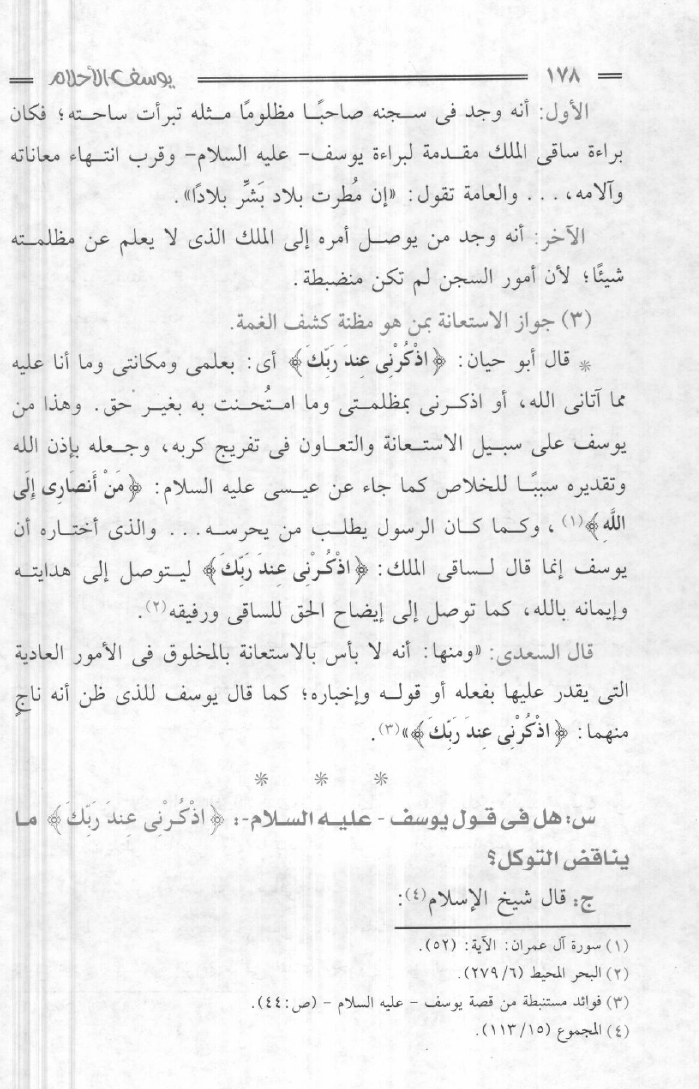 ١٧٨ يوسف الأحلام
الأول: أنه وجد فى سجنه صاحبًا مظلومًا مثله تبرأت ساحته؛ فكان
براءة ساقى الملك مقدمة لبراءة يوسف- عليه السلام- وقرب انتهاء معاناته
وآلامه، . . . والعامة تقول: «إن مُطرت بلاد بَشِّر بلادًا».
الآخر: أنه وجد من يوصل أمره إلى الملك الذى لا يعلم عن مظلمته
شيئًا؛ لأن أمور السجن لم تكن منضبطة.
(٣) جواز الاستعانة بمن هو مظنة كشف الغمة.
* قال أبو حيان: ﴿اذْكُرْنِى عِندَ رَبِّكَ﴾ أى: بعلمى ومكانتى وما أنا عليه
مما آتانى الله، أو اذكرنى بمظلمتى وما امتُحنت به بغير حق. وهذا من
يوسف على سبيل الاستعانة والتعاون فى تفريج كربه، وجعله بإذن الله
وتقديره سببًا للخلاص كما جاء عن عيسى عليه السلام: ﴿مَنْ أَنصَارِى إِلَى
اللَّهِ﴾(١)، وكما كان الرسول يطلب من يحرسه . . . والذى أختاره أن
يوسف إنما قال لساقى الملك: ﴿اذْكُرْنِى عِندَ رَبِّكَ﴾ ليتوصل إلى هدايته
وإيمانه بالله، كما توصل إلى إيضاح الحق للساقى ورفيقه(٢).
قال السعدى: «ومنها: أنه لا بأس بالاستعانة بالمخلوق فى الأمور العادية
التى يقدر عليها بفعله أو قوله وإخباره؛ كما قال يوسف للذى ظن أنه ناجٍ
منهما: ﴿اذْكُرْنِى عِندَ رَبِّكَ﴾»(٣).
* * *
س: هل فى قول يوسف - عليه السلام-: ﴿اذْكُرْنِى عِندَ رَبِّكَ﴾ ما
يناقض التوكل؟
ج: قال شيخ الإسلام(٤):
(١) سورة آل عمران: الآية: (٥٢).
(٢) البحر المحيط (٢٧٩/٦).
(٣) فوائد مستنبطة من قصة يوسف - عليه السلام - (ص:٤٤).
(٤) المجموع (١١٣/١٥).